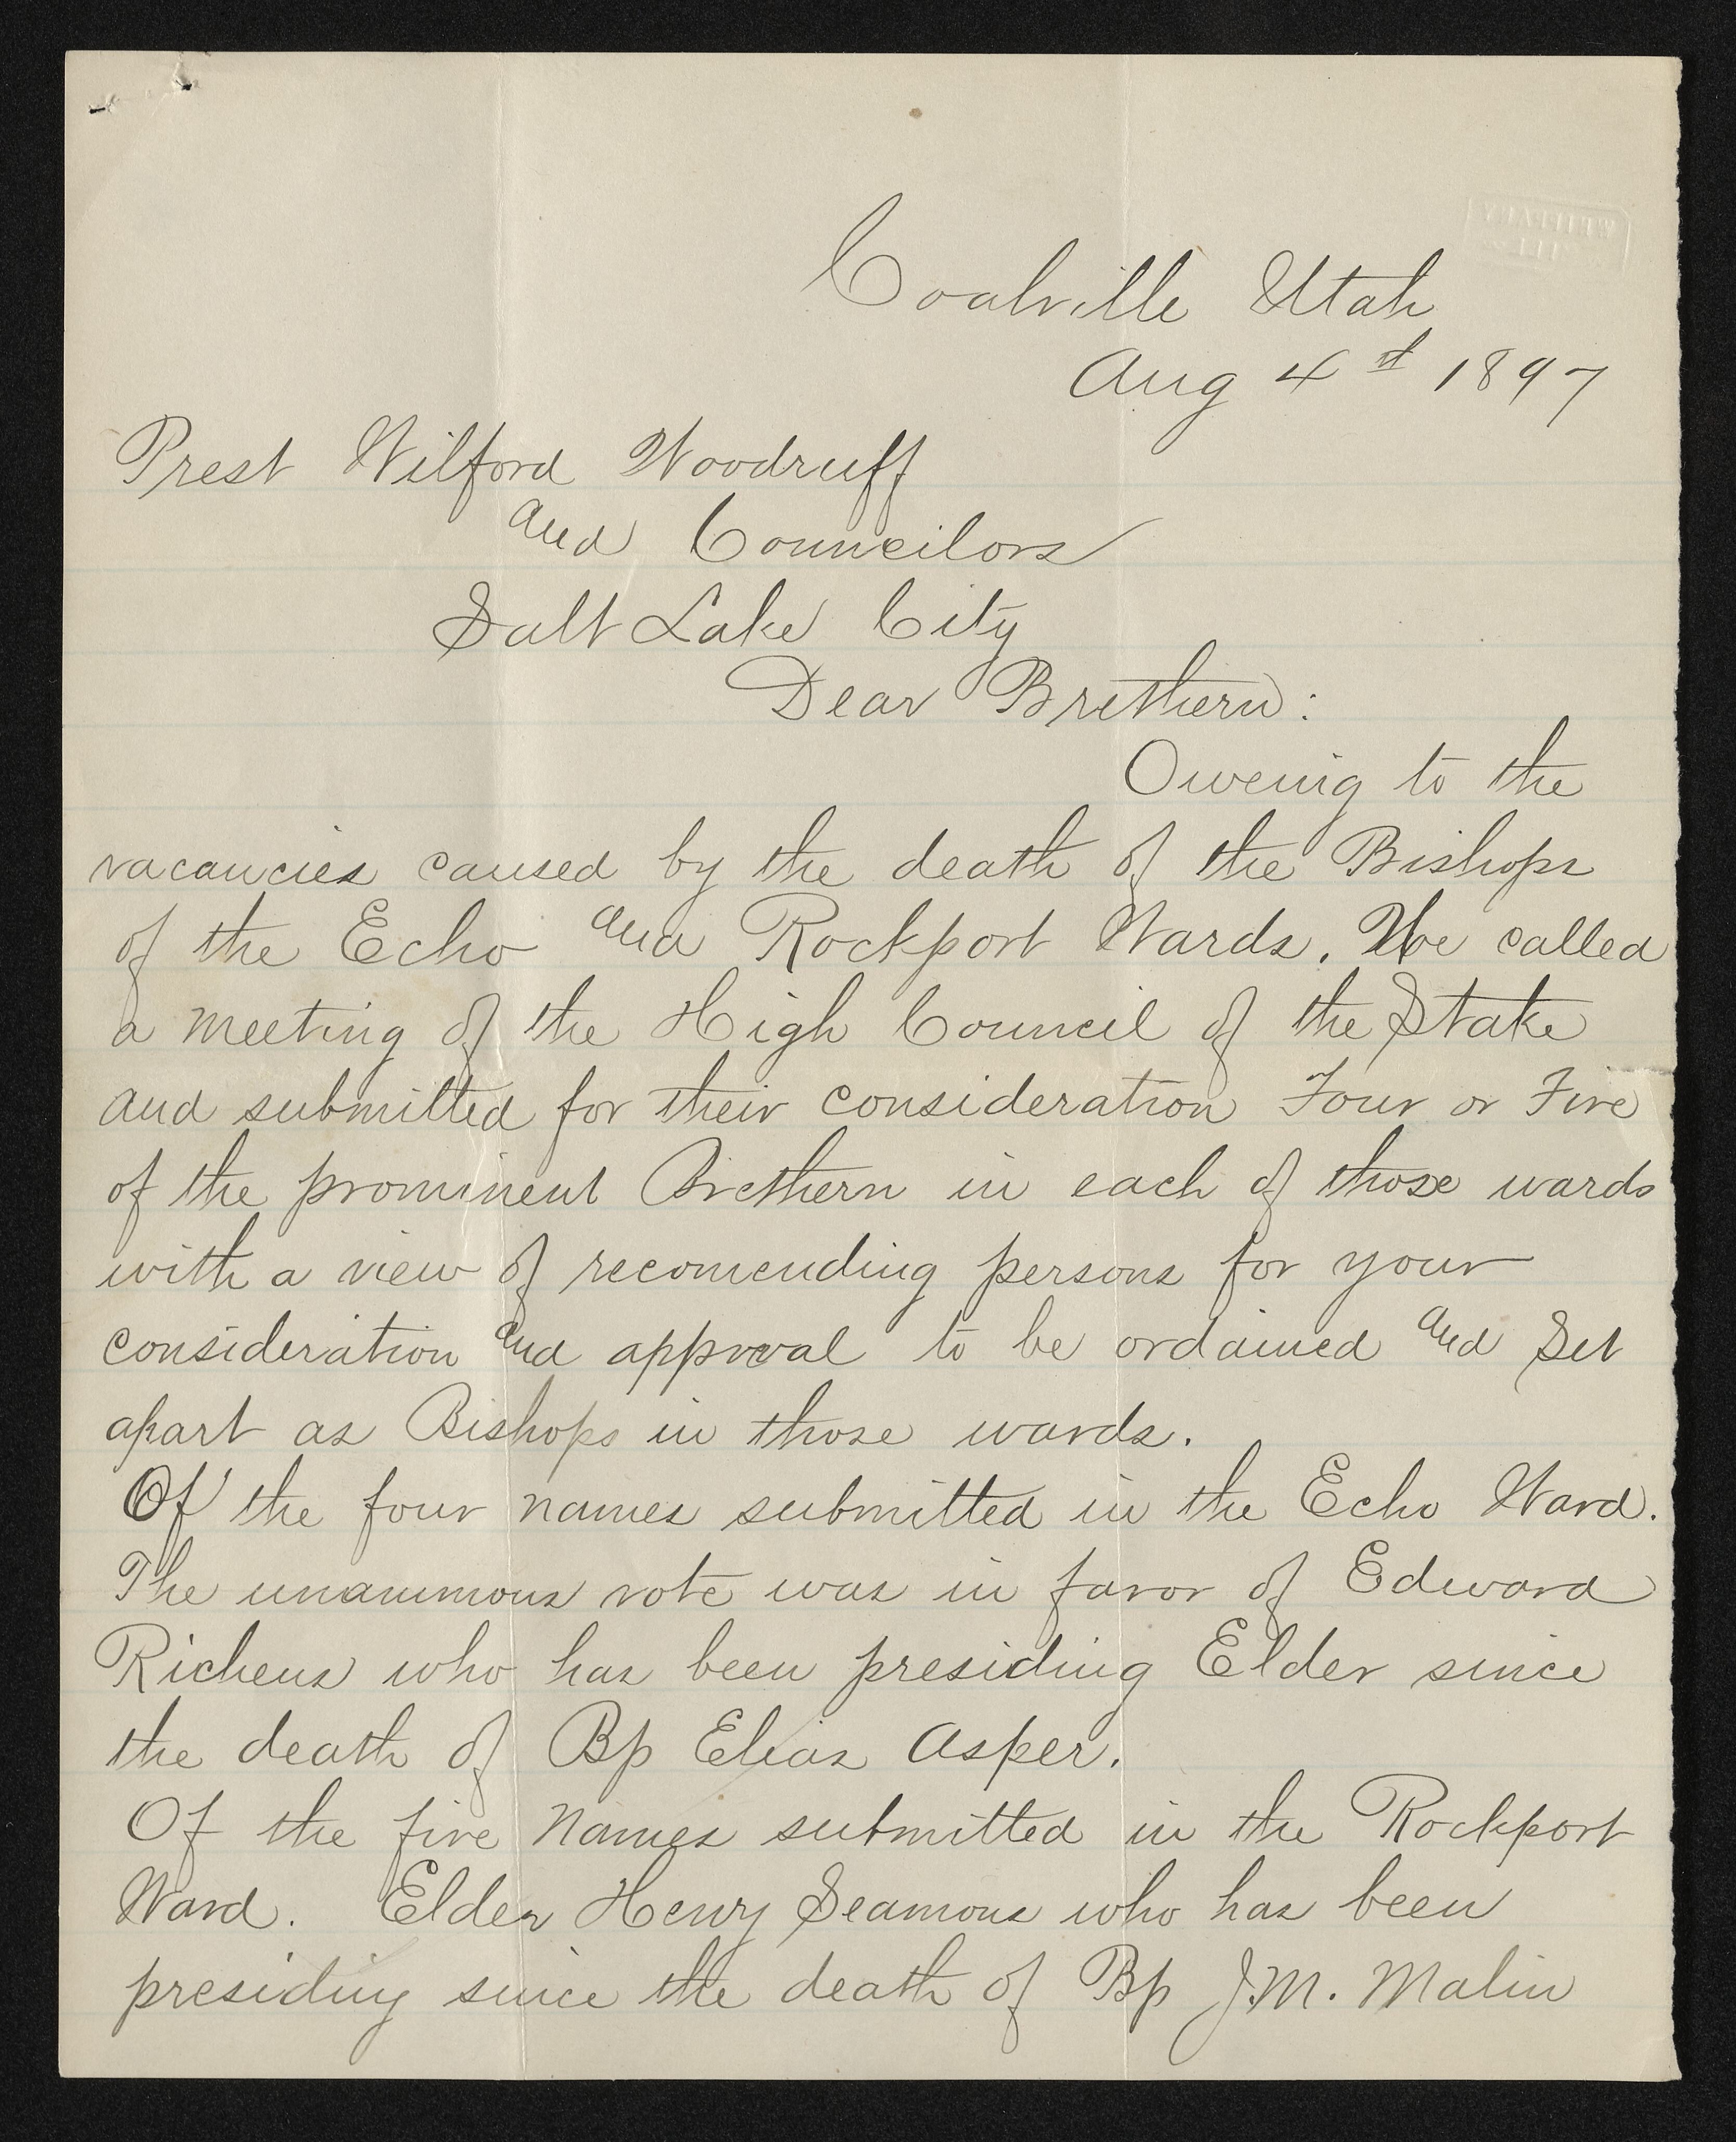 Coalville Utah
Aug 4st 1897
Prest Wilford Woodruff
and Councilors
Salt Lake City
Dear Brethern:
Oweing to the
vacancies caused by the death of the Bishops
of the Echo and Rockport Wards. We called
a meeting of the High Council of the Stake
and submitted for their consideration Four or Five
of the prominent Brethern in each of those wards
with a view of recomending persons for your
consideration and approval to be ordained and Set
apart as Bishops in those wards.
Of the four names submitted in the Echo Ward.
The unanimous vote was in favor of Edward
Richens who has been presiding Elder since
the death of Bp Elias Asper.
Of the five Names submitted in the Rockport
Ward. Elder Henry Seamons who has been
presiding since the death of Bp J.M. Malin